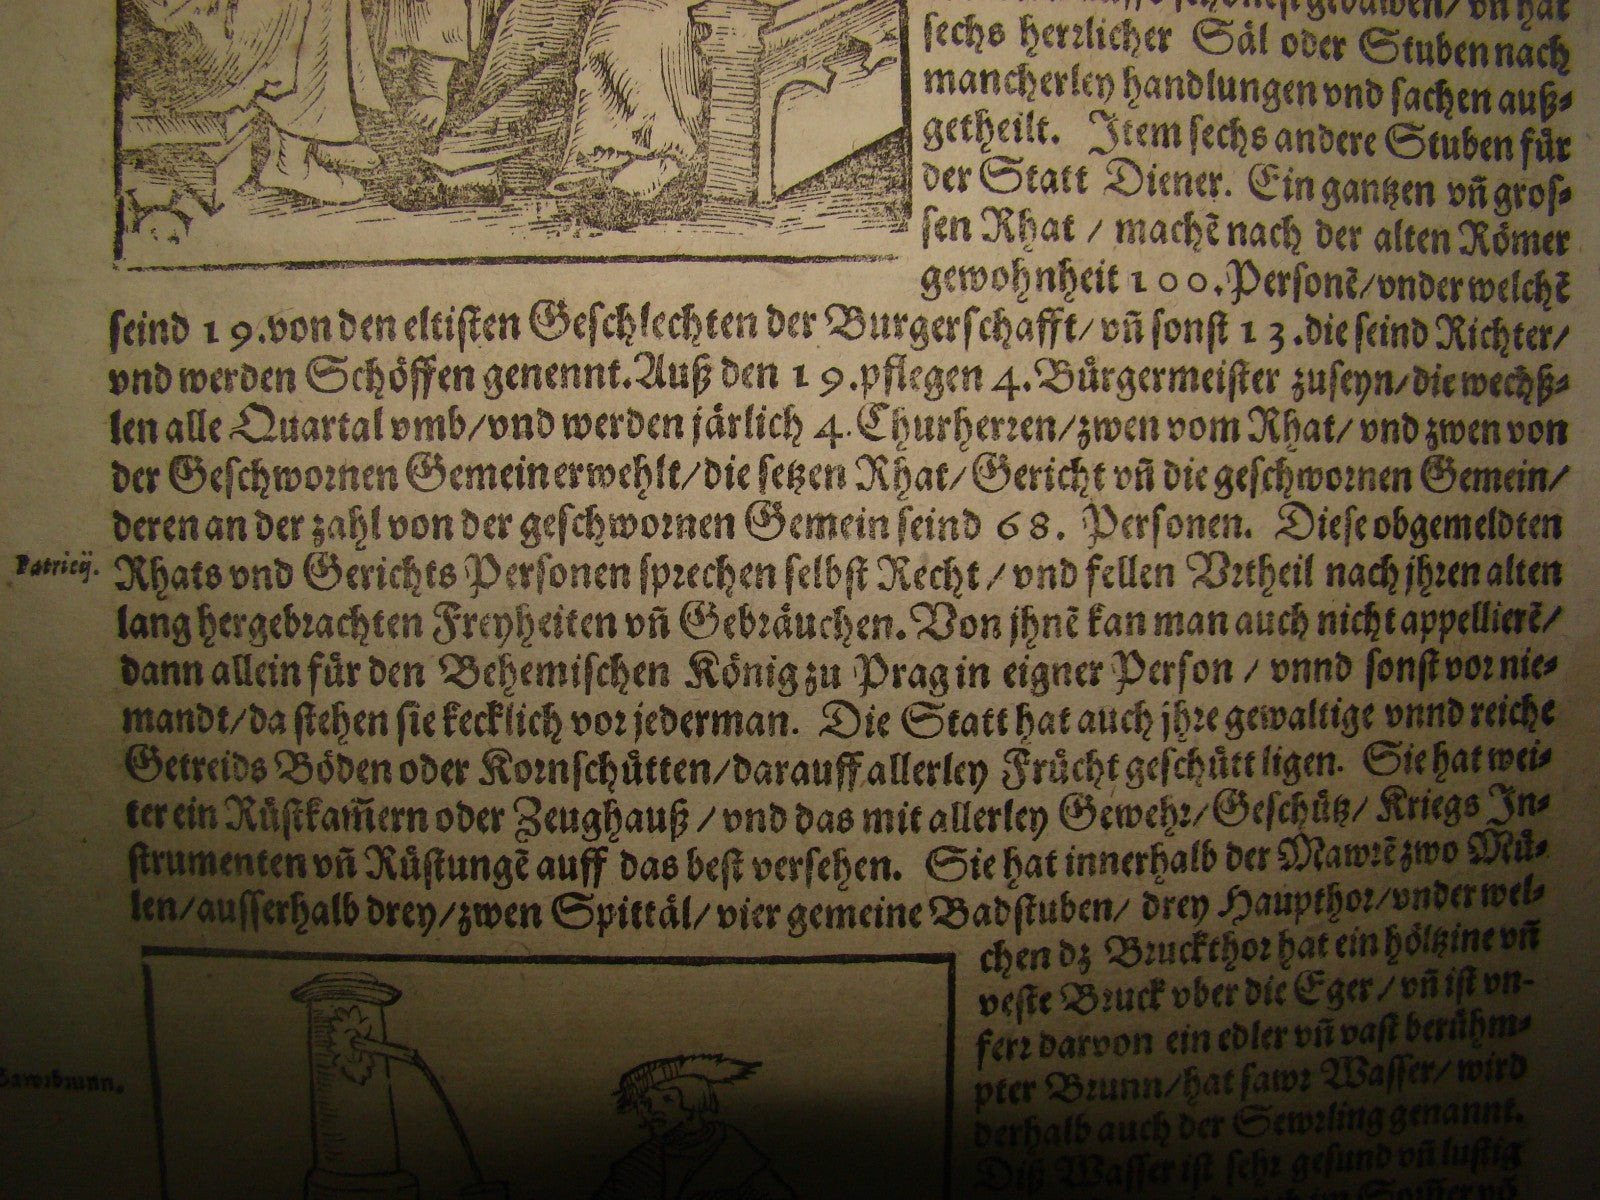 schönest gebawen/ vñ hat
sechs herꝛlicher Säl oder Stuben nach
mancherley handlungen vnd sachen auß⸗
getheilt. Item sechs andere Stuben für
der Statt Diener. Ein gantzen vñ gros⸗
sen Rhat / machẽ nach der alten Römer
gewohnheit 100. Personẽ/vnder welchẽ
seind 19. von den eltisten Geschlechten der Burgerschafft/ vñ sonst 13. die seind Richter/
vnd werden Schöffen genennt. Auß den 19. pflegen 4. Bürgermeister zuseyn/die wechß⸗
len alle Quartal vmb/vnd werden järlich 4. Churherꝛen/zwen vom Rhat/ vnd zwen von
der Geschwoꝛnen Gemein erwehlt/die setzen Rhat/Gericht vñ die geschwoꝛnen Gemein/
deren an der zahl von der geschwoꝛnen Gemein seind 68. Personen. Diese obgemeldten
Patricij.
Rhats vnd Gerichts Personen spꝛechen selbst Recht / vnd fellen Vꝛtheil nach jhꝛen alten
lang hergebꝛachten Freyheiten vñ Gebꝛäuchen. Von jhnẽ kan man auch nicht appellierẽ/
dann allein für den Behemischen König zu Prag in eigner Person / vnnd sonst voꝛ nie⸗
mandt/da stehen sie kecklich voꝛ jederman. Die Statt hat auch jhꝛe gewaltige vnnd reiche
Getreids Böden oder Koꝛnschütten/darauff allerley Frücht geschütt ligen. Sie hat wei⸗
ter ein Rüstkam̃ern oder Zeughauß / vnd das mit allerley Gewehꝛ/Geschütz/ Kriegs In⸗
strumenten vñ Rüstungẽ auff das best versehen. Sie hat innerhalb der Mawꝛẽ zwo Mü⸗
len/ausserhalb drey/zwen Spittäl/ vier gemeine Badstuben/ drey Haupthoꝛ/vnder wel⸗
chen dz Bꝛuckthoꝛ hat ein höltzine vñ
veste Bꝛuck vber die Eger / vñ ist vn⸗
ferꝛ darvon ein edler vñ vast berühm⸗
Sawꝛbꝛunn.
pter Bꝛunn/hat sawꝛ Wasser/ wird
derhalb auch der Sewꝛling genannt.
Diß Wasser ist sehꝛ gesund vñ lustig